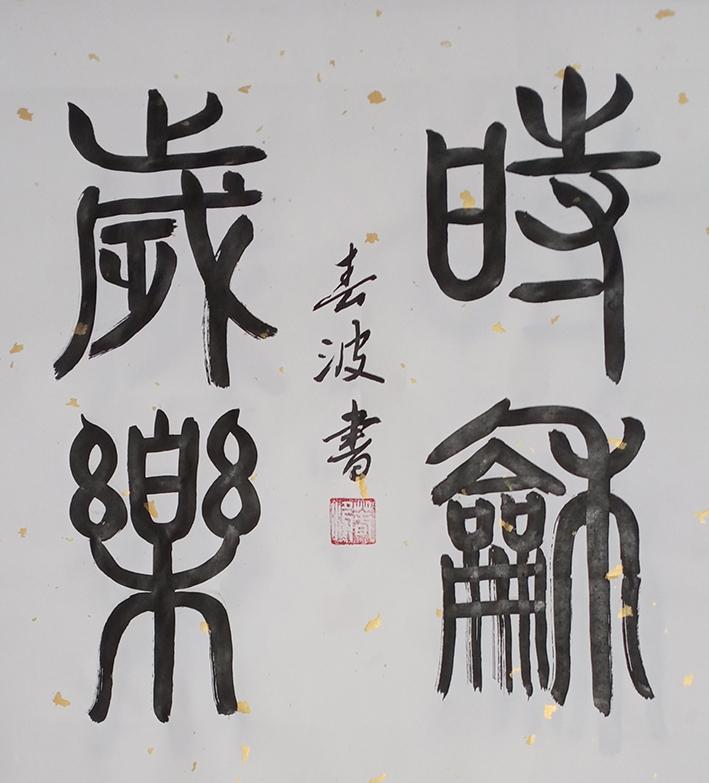 時龢
歲樂
春波書